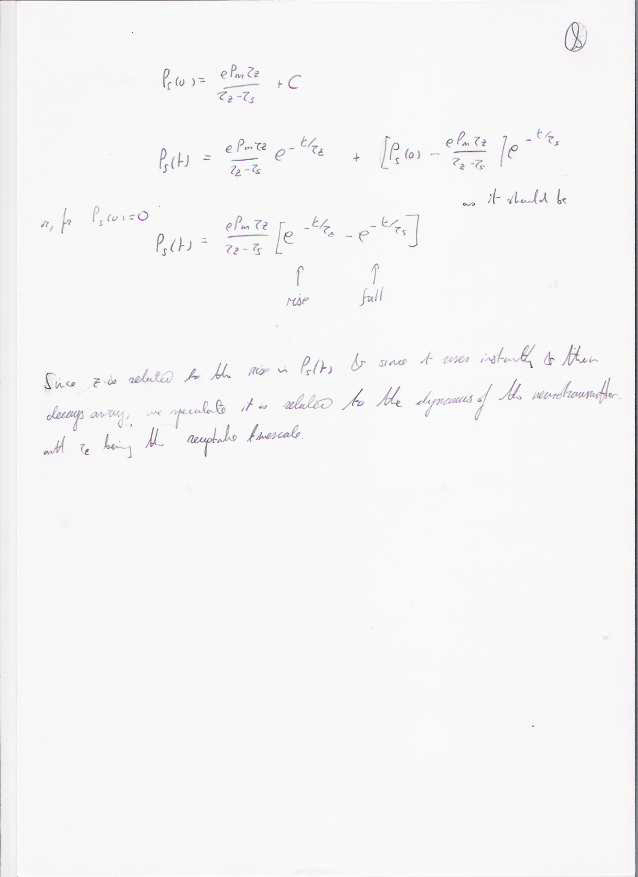 8
P_s(0) = eP_mτ_z / τ_z-τ_s + C
P_s(t) = eP_mτ_z / τ_z-τ_s e^-t/τ_z + [P_s(0) - eP_mτ_z / τ_z-τ_s] e^-t/τ_s
as it should be
or, for P_s(0)=0
P_s(t) = eP_mτ_z / τ_z-τ_s [e^-t/τ_z - e^-t/τ_s]
↑ ↑
rise fall
Since z is related to the rise in P_s(t) & since it rises instantly & then
decays away, we speculate it is related to the dynamics of the neurotransmitter
with τ_z being the reuptake timescale